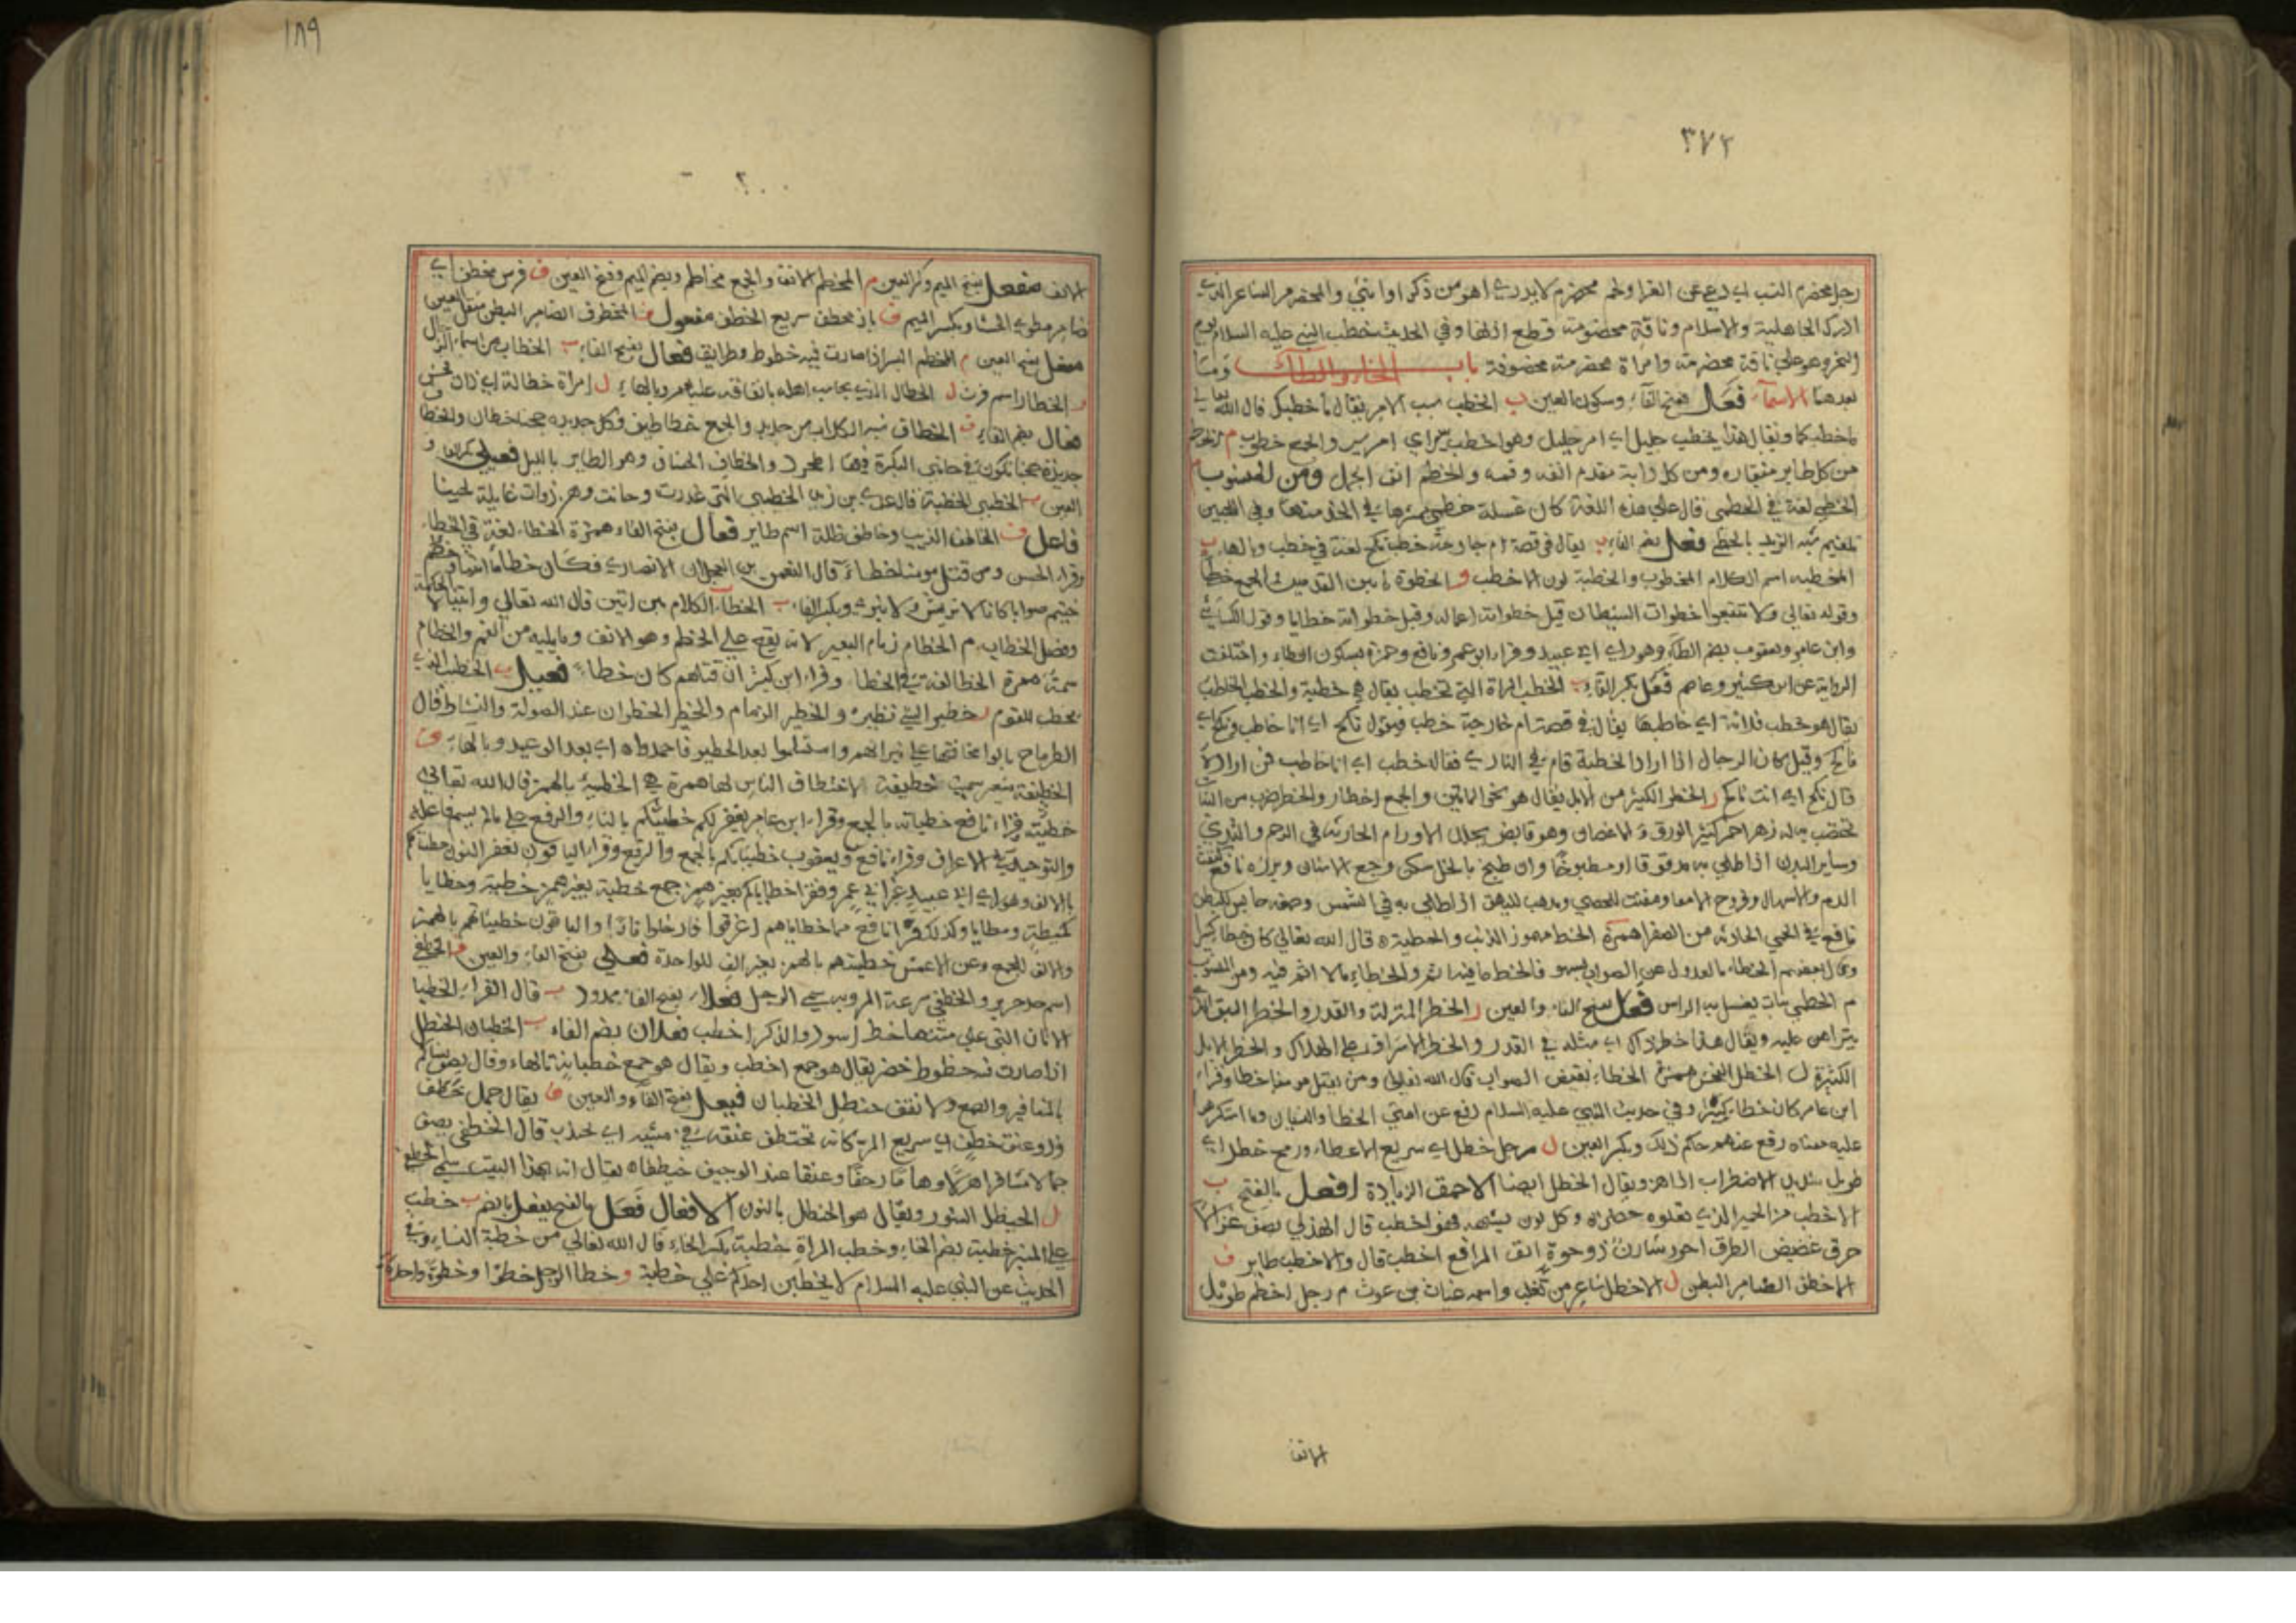 ٣٧٢
رجل مخضرم النسب اي دعي عن الفرا ولحم مخضرم لا يدري اهو من ذكر او انثي والمخضرم الشاعر الذي
ادرك الجاهلية والاسلام وناقة مخضرمة قطع اذنها وفي الحديث خطب النبي عليه السلام يوم
النحر وهو علي ناقة مخضرمة وامراة مخضرمة مخفوضة باب الخاء والطاء وما
بعدهما الاسماء فعل بفتح الفاء وسكون العين ب الخطب سبب الامر يقال ما خطبك قال الله تعالي
ما خطبكما ويقال هذا خطب جليل اي امر جليل وهو خطب يسير اي امر يسير والجمع خطوب م
من كل طاير منقاره ومن كل دابة مقدم انفه وفمه والخطم انف الجبل ومن المنسوب م
الخطمي لغة في الخطمي قال علي هذه اللغة كان غسلة خطمي في الخد منها وفي اللحيين
تلغيم شبه الزبد بالخطمي فعل بضم الفاء ب يقال في قصة ام خارجة خطب نكح لغة في خطب وبالهاء ب
الخطبة اسم الكلام المخطوب والخطبة لون الاخطب و الخطوة ما بين القدمين الجمع خطا
وقوله تعالي ولا تتبعوا خطوات الشيطان قيل خطواته اعماله وقيل خطواته خطايا وقول الكسائي
وابن عامر ويعقوب بضم الطاء وهو راي ابي عبيد وقراء ابو عمرو ونافع وحمزة بسكون الطاء واختلفت
الرواية عن ابن كثير وعاصم فعل بكسر الفاء ب الخطب المراة التي تخطب يقال هي خطبة والخطب الخاطب
يقال هو خطب فلانة اي خاطبها يقال في قصة ام خارجة خطب فيقول نكح اي انا خاطب
وقيل كان الرجل اذا اراد الخطبة قام في النادي فقال خطب اي انا خاطب فمن اراد
قال نكح اي انت ناكح ر الخطر الكثير من الابل يقال هو نحو المائتين والجمع اخطار والخطر ضرب من النبات
تختضب به له زهر احمر كثير الورق والاغصان وهو قابض يحلل الاورام الحارثة في الرحم والثديين
وساير البدن اذا طلي به مدقوقا او مطبوخا وان طبخ بالخل سكن وجع الاسنان وبزره نافع
الدم والاسهال وقروح الامعا ومفتت للحصي ومذهب للبهق اذا طلي به في الشمس وصمغه حابس للبطن
نافع في الحمي الحادثة من الصفرا همزة الخط مهموز الذنب والخطية قال الله تعالي كان خطا كبيرا
وقال بعضهم الخطاء بالعدول عن الصواب بسهو فالخط ما فيه اثم والخطاء ما لا اثم فيه ومن المنسوب
م الخطمي نبات يغسل به الراس فعل بفتح الفاء والعين ر الخطر المنزلة والقدر والخطر السبق الذي
يتراهن عليه ويقال هذا خطر ذاك اي مثله في القدر والخطر الاشراف علي الهلاك والخطر الابل
الكثيرة ل الخطل الفحش همزة الخطاء نقيض الصواب قال الله تعالي ومن يقتل مومنا خطا وقراء
ابن عامر كان خطاء كبيرا وفي حديث النبي عليه السلام رفع عن امتي الخطا والنسيان وما استكرهوا
عليه معناه رفع عنهم حكم ذلك وبكسر العين ل رجل خطل اي سريع الاعطاء ورمح خطل اي
طويل شديد الاضطراب الماهز ويقال الخطل ايضا الاحمق الزيادة افعل بالفتح ب
الاخطب من الحمير الذي تعلوه خضرة وكل لون يشبهه فهو اخطب قال الهذلي يصف غزالا
خرق غضيض الطرف احور شادن ذو حوة انف المراقع اخطب قال والاخطب طاير ف
الاخطف الضامر البطن ل الاخطل شاعر من تغلب واسمه غياث بن غوث م رجل اخطم طويل
الانف
١٨٩
الانف مفعل بفتح الميم وكسر العين م المخطم الانف والجمع مخاطم وبضم الميم وفتح العين ف فرس مخطف اي
ضامر مطوي الحشا وبكسر الميم ف باز مخطف سريع الخطف مفعول ف المخطوف الضامر البطن مثقل العين
مفعل بفتح العين م المخطم البسر اذا صارت فيه خطوط وطرايق فعال بفتح الفاء ب الخطاب من اسماء الرجال
ر الخطار اسم فرس ل الخطال الذي يحاسب اهله بانفاقه عليهم وبالهاء ل امراة خطالة اي ذات فحش
فعال بضم الفاء ف الخطاف شبه الكلاب من حديد والجمع خطاطيف وكل حديدة حجناء خطاف والخطاف
حديدة حجنا تكون في جانبي البكرة فيها المحور والخطاف الخشاف وهو الطاير بالليل فعيلي بكسر الفاء و
العين ب الخطيبي الخطبة قال عدي بن زيد الخطيبي التي غدرت وخانت وهن ذوات غايلة لحينا
فاعل ف الخاطف الذيب وخاطف ظله اسم طاير فعال بفتح الفاء همزة الخطاء لغة في الخطا
وقراء الحسن ومن قتل مومنا خطاء قال النعمن بن العجلان الانصاري فكان خطاء
ويكسر الفاء ب الخطاب الكلام بين اثنين قال الله تعالي واتيناه الحكمة
وفصل الخطاب م الخطام زمام البعير لانه يقع علي الخطم وهو الانف وما يليه من الفم والخطام
سمة همزة الخطا لغة في الخطا وقراء ابن كثير ان قتلهم كان خطاء فعيل ب الخطيب الذي
يخطب للقوم ر خطير الشي نظيره والخطير الزمام والخطير الخطران عند الصولة والنشاط قال
الطرماح بالوا مخافتها علي نيرانهم واستسلموا بعد الخطير فاخمدوا اي بعد الوعيد وبالهاء ف
الخطيفة سميت خطيفة لاختطاف الناس لها همزة هي الخطيئة بالهمز قال الله تعالي
خطيئته قراء نافع خطياته بالجمع وقراء ابن عامر يغفر لكم خطيئتكم بالتاء والرفع علي ما لم يسم فاعله
والتوحيد في الاعراف وقراء نافع ويعقوب خطيئاتكم بالجمع والرفع وقراء الباقون نغفر بالنون خطيئاتكم
بالالف وهو راي ابي عبيد غير ابي عمرو فقرا خطاياكم بغير همز جمع خطية بغير همز خطية وخطايا
كمطية ومطايا وكذلك قراء نافع مما خطاياهم اغرقوا فادخلوا نارا والباقون خطيئاتهم بالهمز
والالف للجمع وعن الاعمش خطيئتهم بالهمز بغير الف للواحدة فعلي بفتح الفاء والعين ف الخطفي
اسم جد جرير والخطفي سرعة المر وبه سمي الرجل فعلاء بفتح الفاء ممدود ب قال الفراء الخطبا
الاتان التي علي متنها خط اسود والذكر اخطب فعلان بضم الفاء ب الخطبان الحنظل
اذا صارت فيه خطوط خضر يقال هو جمع اخطب ويقال هو جمع خطبانة بالهاء وقال يصف
بالمغافير والصمغ ولا نقف حنظل الخطبان فيعل بفتح الفاء والعين ف يقال جمل خيطف
وذو عنق خطف اي سريع المر كانه تختطف عنقه في مشيه اي تجذب قال الخطفي يصف
جمالا وعنقا عند الوجيف خيطفا يقال انه بهذا البيت سمي الخطفي
ل الخيطل السنور ويقال هو الحنظل بالنون الافعال فعل بالفتح يفعل بالضم ب خطب
علي المنبر خطبة بضم الخاء وخطب المراة خطبة بكسر الخاء قال الله تعالي من خطبة النساء وفي
الحديث عن النبي عليه السلام لا يخطبن احدكم علي خطبة و خطا الرجل خطوا وخطوة واحدة